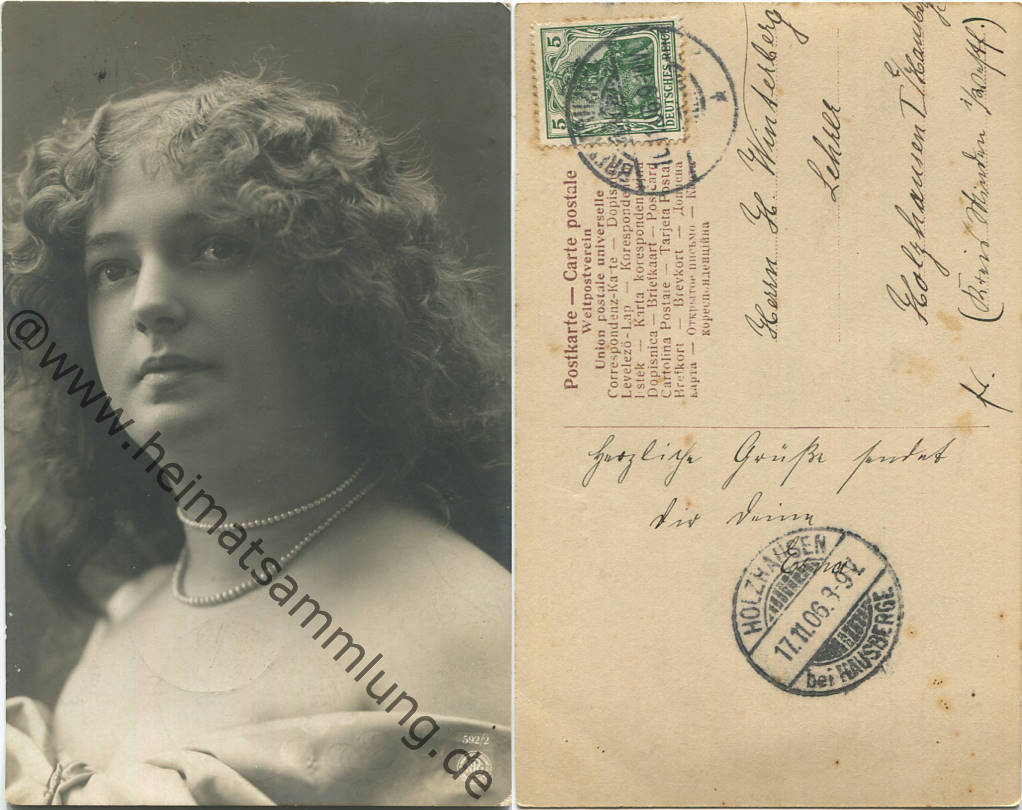 @www.heimatsammlung.de
592/2
5 5
5
DEUTSCHES REICH
Postkarte — Carte postale
Weltpostverein
Union postale universelle
Correspondenz-Karte — Dopis
Levelező-Lap — Korespondenční
lístek — Karta korespondencyjna
Dopisnica — Briefkaart — Post card
Cartolina Postale — Tarjeta Postal
Brefkort — Brevkort — Дописна
карта — Открытое письмо — Карта
кореспонденційна
Herrn H. Winterberg
Lehrer
Holzhausen I / Hausberge
(Kreis Minden i/Westf.)
fr.
Herzliche Grüße sendet
Dir Deine
Erna
HOLZHAUSEN
17.11.06.3-9V.
bei HAUSBERGE